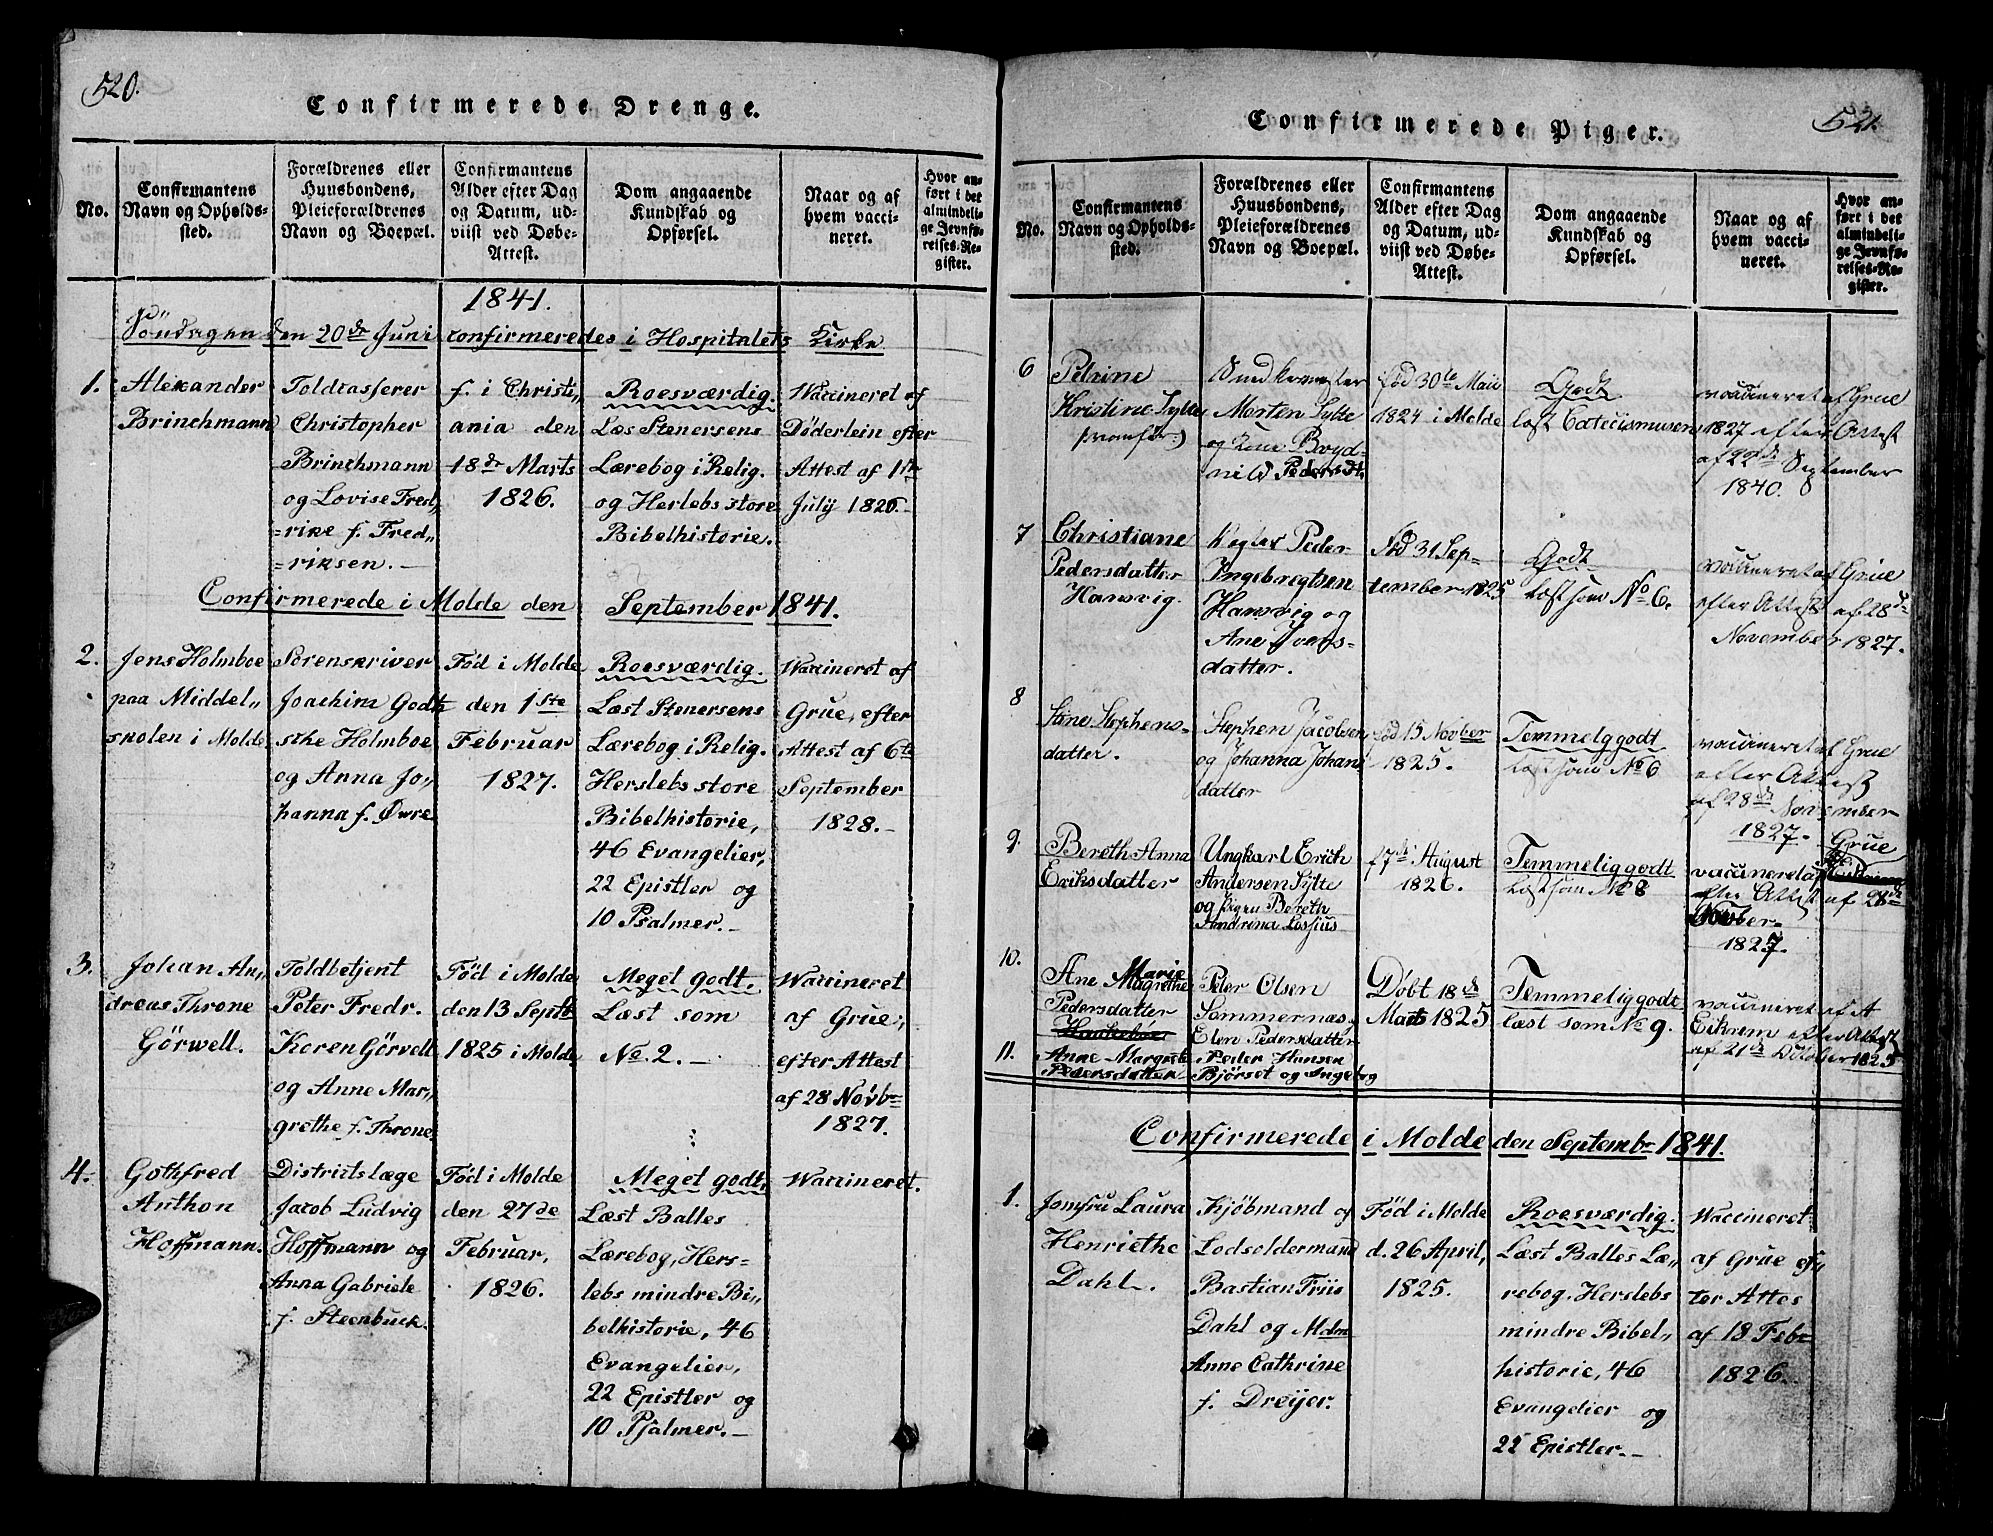 520.
Confirmerede Drenge.
No.
Confirmantens
Navn og Opholds-
sted.
Forældrenes eller
Huusbondens,
Pleieforældrenes
Navn og Boepæl.
Confirmantens
Alder efter Dag
og Datum, ud-
viist ved Døbe-
Attest.
Dom angaaende
Kundskab og
Opførsel.
Naar og af
hvem vacci-
neret.
Hvor an-
ført i det
almindeli-
ge Jevnfø-
relses-Re-
gister.
1841.
Söndagen den 20de Juni confirmeredes i Hospitalets Kirke
1.
Alexander
Brinchmann
Toldcasserer
Christopher
Brinchmann
og Lovise Fred„
=rike f. Fred„
=riksen.-
f. i Christi„
ania den
18de Marts
1826.
Roesværdig.
Læs Stenersens
Lærebog i Relig.
og Herlebs store
Bibelhistorie.
Vaccineret af
Døderlein efter
Attest af 1ste
July 1826.-
Confirmerede i Molde den September 1841.
2.
Jens Holmboe
paa Middel„
skolen i Molde
Sorenskriver
Joachim Godt
ske Holmboe
og Anna Jo„
hanna f. Øvre
Født i Molde
den 1ste
Februar
1827.
Roesværdig.
Læst Stenersens
Lærebog i Relig.
Herslebs store
Bibelhistorie,
46 Evangelier,
22 Epistler og
10 Psalmer.-
Vaccineret af
Grue, efter
Attest af 6te
September
1828.-
3.
Johan An„
dreas Throne
Görwell.
Toldbetjent
Peter Fredr.
Koren Görvell
og Anne Mar„
grethe f. Throne
Født i Molde
den 13 Septb
1825 i Molde
Meget godt.
Læst som
No. 2.-
Vaccineret
af Grue,
efter Attest
af 28 Novbr
1827.
4.
Gothfred
Anthon
Hoffmann.
Districtslæge
Jacob Ludvig
Hoffmann og
Anna Gabriele
f. Steenbuck.
Född i Molde
den 27de
Februar,
1826.
Meget godt.
Læst Balles
Lærebog, Hers-
lebs mindre Bi„
belhistorie, 46
Evangelier,
22 Epistler og
10 Psalmer.-
Vaccineret.
521.
Confirmerede Piger.
No.
Confirmantens
Navn og Opholds-
sted.
Forældrenes eller
Huusbondens,
Pleieforældrenes
Navn og Boepæl.
Confirmantens
Alder efter Dag
og Datum, ud-
viist ved Døbe-
Attest.
Dom angaaende
Kundskab og
Opførsel.
Naar og af
hvem vacci-
neret.
Hvor an-
ført i det
almindeli-
ge Jevnfø-
relses-Re-
gister.
6
Petrine
Kristine Sylte
Morten Sylte
og Lene
Pedersdt.
fød 30te Maii
1824 i Molde
Godt
læst Catecismusen
vaccineret af Grue
1827 efter Attest
af 22de September
1840.
7
Christiane
Pedersdatter
Hansvig.
Peder
Ingebregtsen
Hansvig og
Ane Ivers-
datter.
Fød 31 Sep-
tember 1825
Godt
Læst som No 6.
vaccineret af Grue
efter Attest af 28de
November 1827.
8
Stine Stephens-
datter.
Stephen Jacobsen
og Johanna Johans
datter
fød 15 Novber
1825.
Temmelig godt
læst som No 6
vaccineret af Grue
efter Attest
af 28de November
1827.
9.
Bereth Anna
Eriksdatter
Ungkarl Erich
Andersen Sylte
og Pigen Bereth
Andrina Lossius
f 7de August
1826.
Temmelig godt
Læst som No 8
vaccineret af Grue
efter Attest af 28de
Novber-
1827.
10.
Ane Marie
Magrethe
Pedersdatter
Peter Olsen
Sommernæs
Elen Pedersdatter
Døbt 18de
Marts 1825
Temmelig godt
læst som No 9.
vaccineret af A
Eikrem efter Attest
af 21de October 1825
11.
Anne Margrete
Pedersdatter
Peder Hansen
Bjørset og Ingebog
Confirmerede i Molde den Septembr 1841.
1.
Jomfru Laura
Henriethe
Dahl.
Kjöbmand og
Lodsoldermand
Bastian Friis
Dahl og Mdm
Anne Cathrine
f. Dreÿer.
Född i Molde
d. 26 April,
1825.
Roesværdig.
Læst Balles Læ„
rebog, Herslebs
mindre Bibel„
historie, 46
Evangelier og
22 Epistler.-
Vaccineret
af Grue ef„
ter Attes
af 18 Febr
1826.